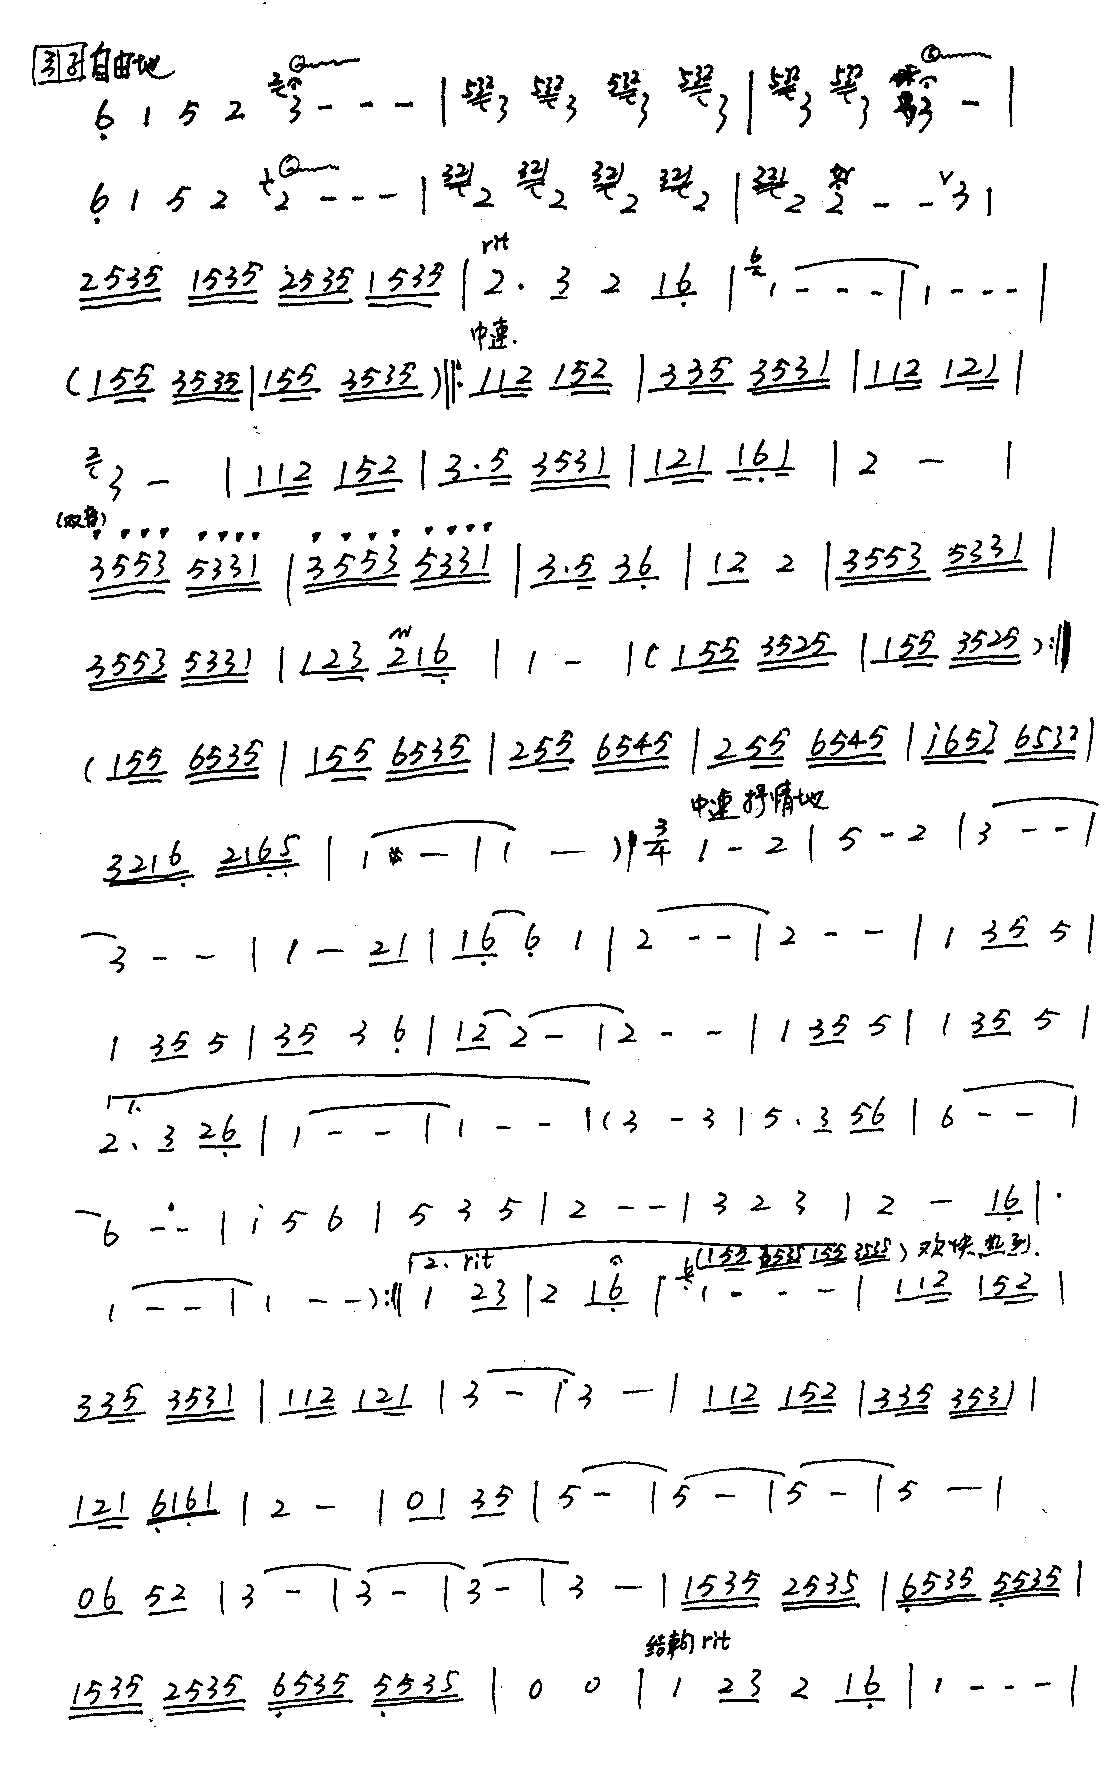 引子 自由地
6 1 5 2 3 - - - | 532 3 532 3 532 3 532 3 | 532 3 532 3 3 - |
6 1 5 2 2 - - - | 321 2 321 2 321 2 321 2 | 321 2 2 - - v 3 |
rit
2535 1535 2535 1535 | 2 . 3 2 16 | 6 1 - - - | 1 - - - |
中速.
( 155 3535 | 155 3535 ) ‖: 112 152 | 335 3531 | 112 121 |
2 3 - | 112 152 | 3.5 3531 | 121 161 | 2 - |
(双音)
3553 5331 | 3553 5331 | 3.5 36 | 12 2 | 3553 5331 |
3553 5331 | 123 216 | 1 - | ( 155 3525 | 155 3525 ) :‖
( 155 6535 | 155 6535 | 255 6545 | 255 6545 | i653 6532 |
中速 抒情地
3216 2165 | 1 - | 1 - ) ‖ 3/4 1 - 2 | 5 - 2 | 3 - - |
3 - - | 1 - 21 | 16 6 1 | 2 - - | 2 - - | 1 35 5 |
1 35 5 | 35 3 6 | 12 2 - | 2 - - | 1 35 5 | 1 35 5 |
1.
2 . 3 26 | 1 - - | 1 - - | ( 3 - 3 | 5 . 3 56 | 6 - - |
6 - - | i 5 6 | 5 3 5 | 2 - - | 3 2 3 | 2 - 16 |
2. rit (155 6535 155 3535) 欢快 热烈.
1 - - | 1 - - ) :‖ 1 23 | 2 16 | 6 1 - - - | 112 152 |
335 3531 | 112 121 | 3 - | 3 - | 112 152 | 335 3531 |
121 6161 | 2 - | 01 35 | 5 - | 5 - | 5 - | 5 - |
06 52 | 3 - | 3 - | 3 - | 3 - | 1535 2535 | 6535 5535 |
结束句 rit
1535 2535 6535 5535 | 0 0 | 1 23 2 16 | 1 - - - |